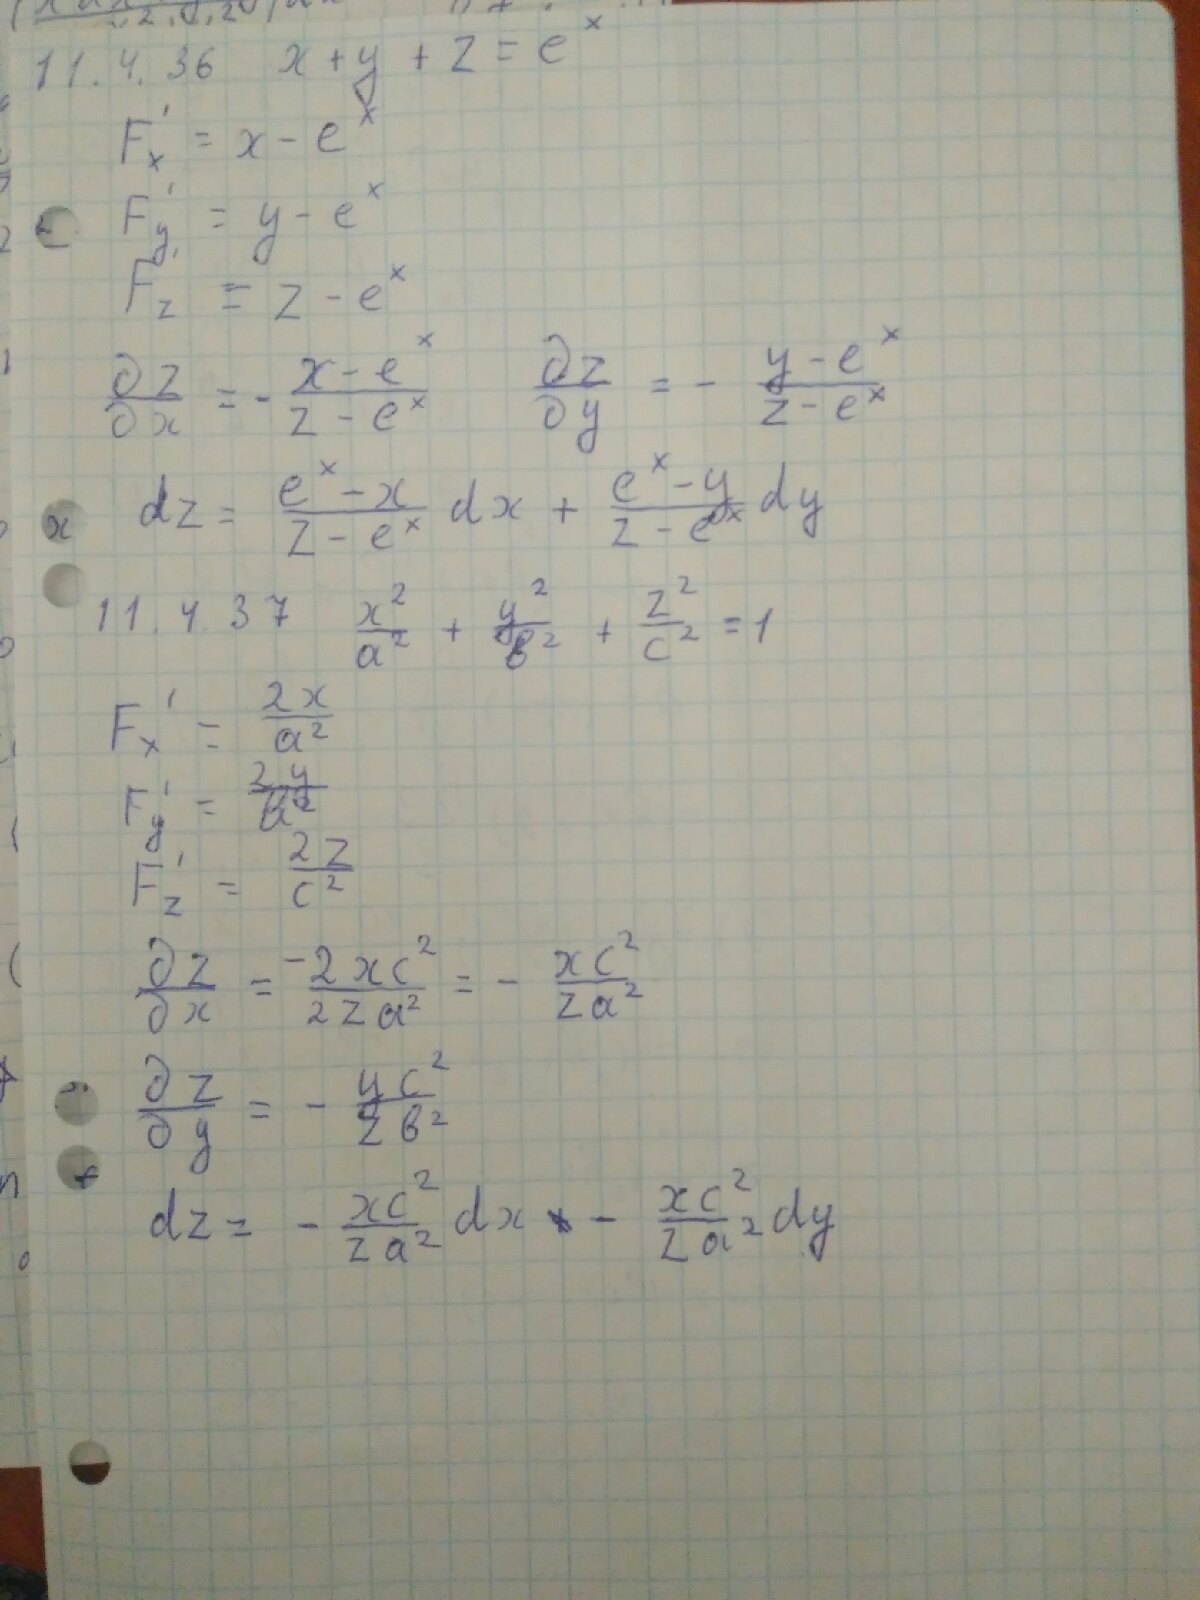 11.4.36 x + y + z = e^x
F'_x = x - e^x
F'_y = y - e^x
F'_z = z - e^x
∂z/∂x = - (x - e^x)/(z - e^x) ∂z/∂y = - (y - e^x)/(z - e^x)
dz = (e^x - x)/(z - e^x) dx + (e^x - y)/(z - e^x) dy
11.4.37 x²/a² + y²/в² + z²/c² = 1
F'_x = 2x/a²
F'_y = 2y/в²
F'_z = 2z/c²
∂z/∂x = -2xc²/2za² = - xc²/za²
∂z/∂y = - yc²/zв²
dz = - xc²/za² dx - xc²/za² dy